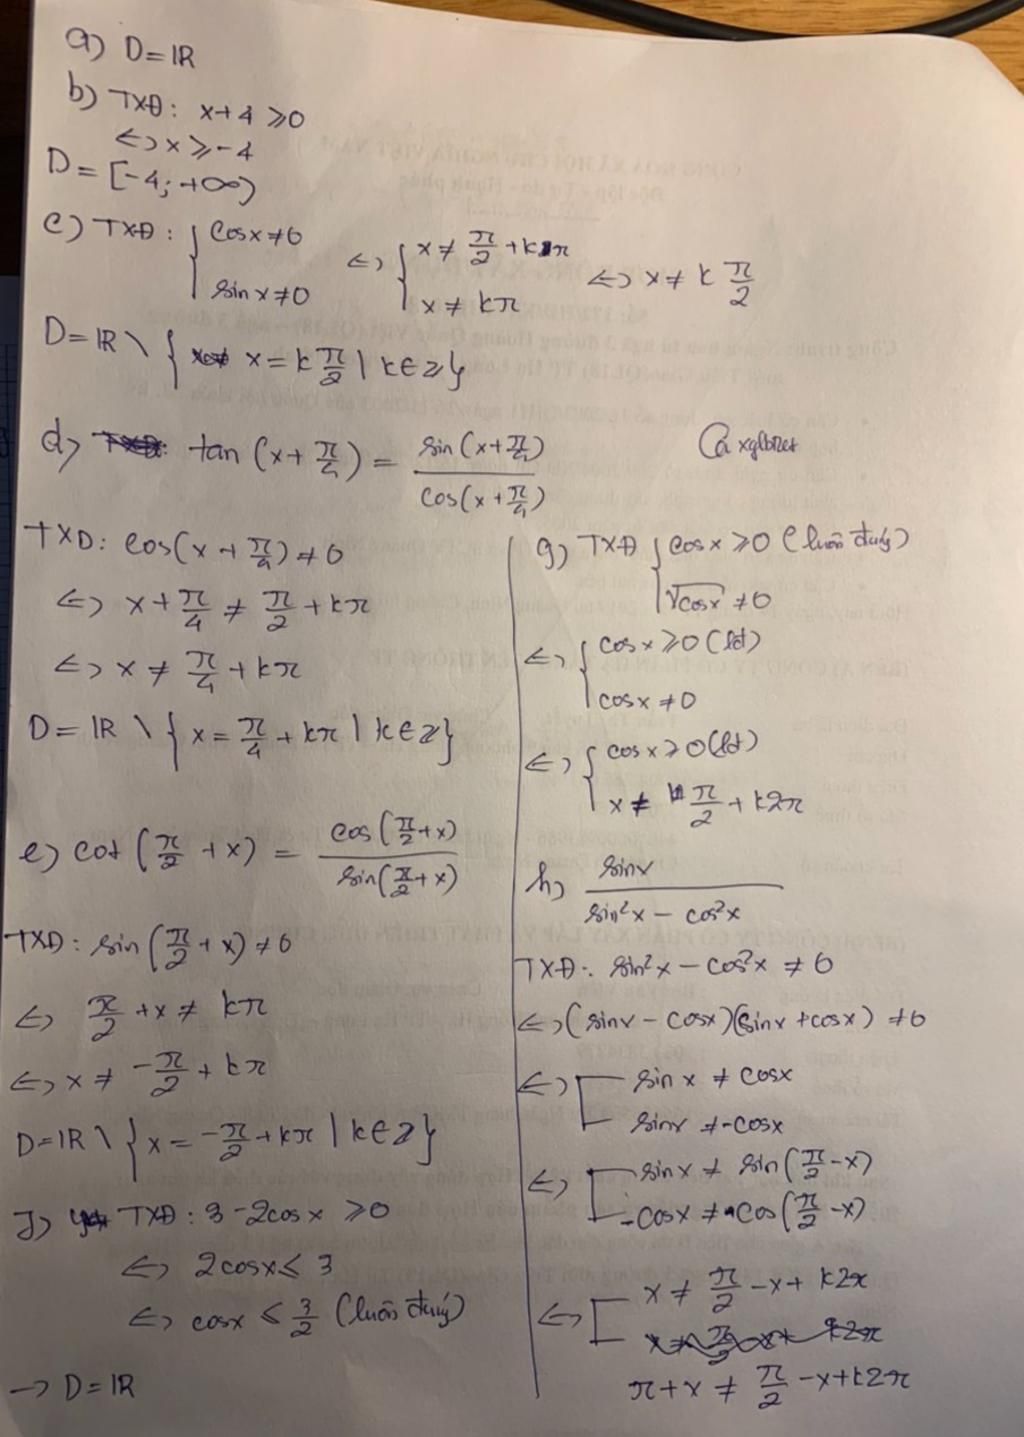 a) D = ℝ
b) TXĐ: x + 4 ≥ 0
<=> x ≥ -4
D = [-4; +∞)
c) TXĐ: { cosx ≠ 0 ; sinx ≠ 0 <=> { x ≠ π/2 + kπ ; x ≠ kπ <=> x ≠ k π/2
D = ℝ \ { x = k π/2 | k ∈ Z }
d) tan (x + π/4) = sin(x + π/4) / cos(x + π/4)
TXD: cos(x + π/4) ≠ 0
<=> x + π/4 ≠ π/2 + kπ
<=> x ≠ π/4 + kπ
D = ℝ \ { x = π/4 + kπ | k ∈ Z }
e) cot (π/2 + x) = cos(π/2 + x) / sin(π/2 + x)
TXD: sin(π/2 + x) ≠ 0
<=> π/2 + x ≠ kπ
<=> x ≠ -π/2 + kπ
D = ℝ \ { x = -π/2 + kπ | k ∈ Z }
TXĐ: 3 - 2cosx ≥ 0
<=> 2cosx ≤ 3
<=> cosx ≤ 3/2 (luôn đúng)
-> D = ℝ
g) TXĐ { cosx ≥ 0 (luôn đúng) ; √cosx ≠ 0
<=> { cosx ≥ 0 (lđ) ; cosx ≠ 0
<=> { cosx ≥ 0 (lđ) ; x ≠ π/2 + k2π
h) sinx / sin²x - cos²x
TXĐ: sin²x - cos²x ≠ 0
<=> (sinx - cosx)(sinx + cosx) ≠ 0
<=> [ sinx ≠ cosx ; sinx ≠ -cosx
<=> [ sinx ≠ sin(π/2 - x) ; -cosx ≠ cos(π/2 - x)
<=> [ x ≠ π/2 - x + k2π
π + x ≠ π/2 - x + k2π